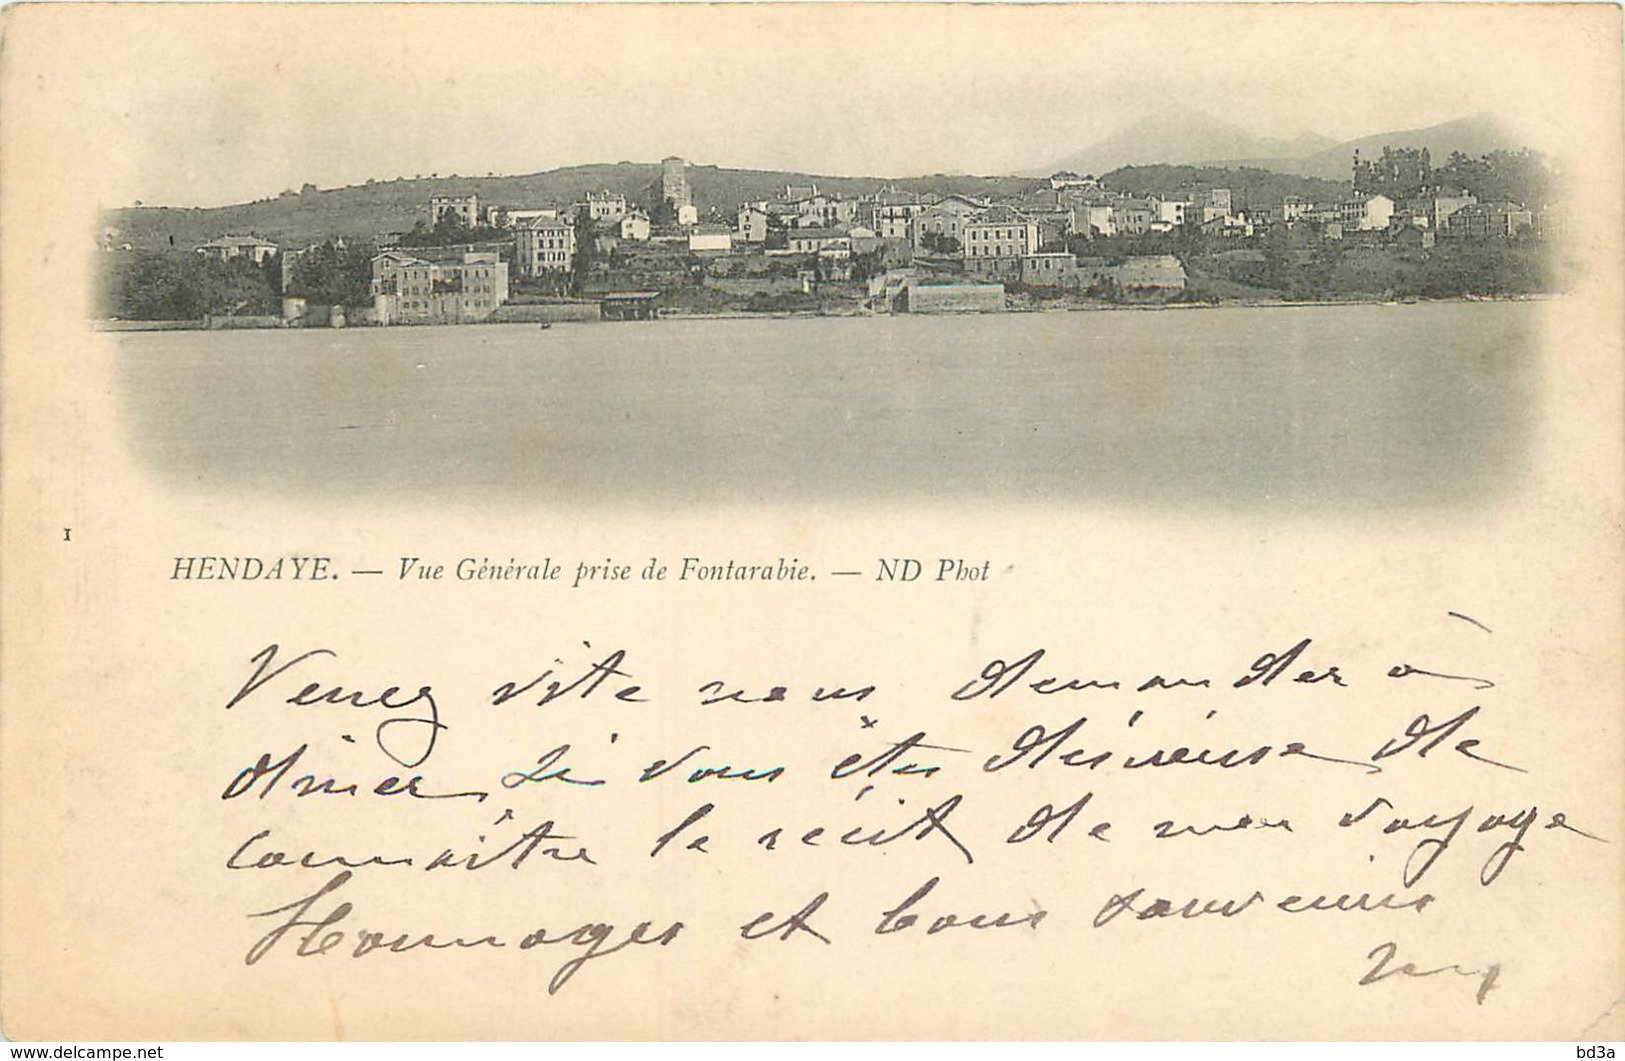 1
HENDAYE. — Vue Générale prise de Fontarabie. — ND Phot
Venez vite nous demander à
dîner si vous êtes désireuse de
connaître le récit de mon voyage
Hommages et bons souvenirs
www.delcampe.net
bd3a